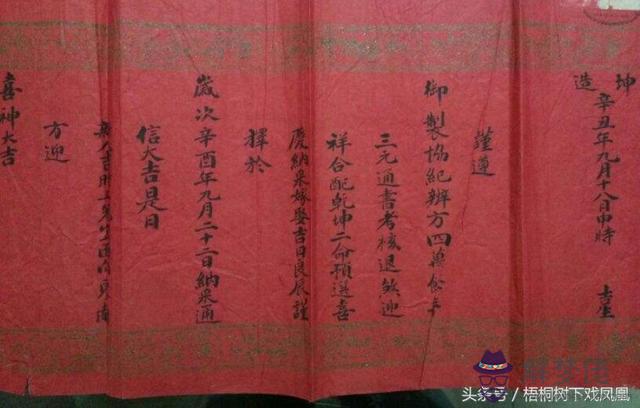 坤造 辛丑年九月十八日申時 吉星
謹遵
御製協紀辦方四萬年
三元通書考核退煞迎
祥合配乾坤二命預選喜
慶納采嫁娶吉日良辰謹
擇於
歲次辛酉年九月二十二日納采通
信大吉是日
吉時
方迎
喜神大吉
头条号 / 梧桐树下戏凤凰